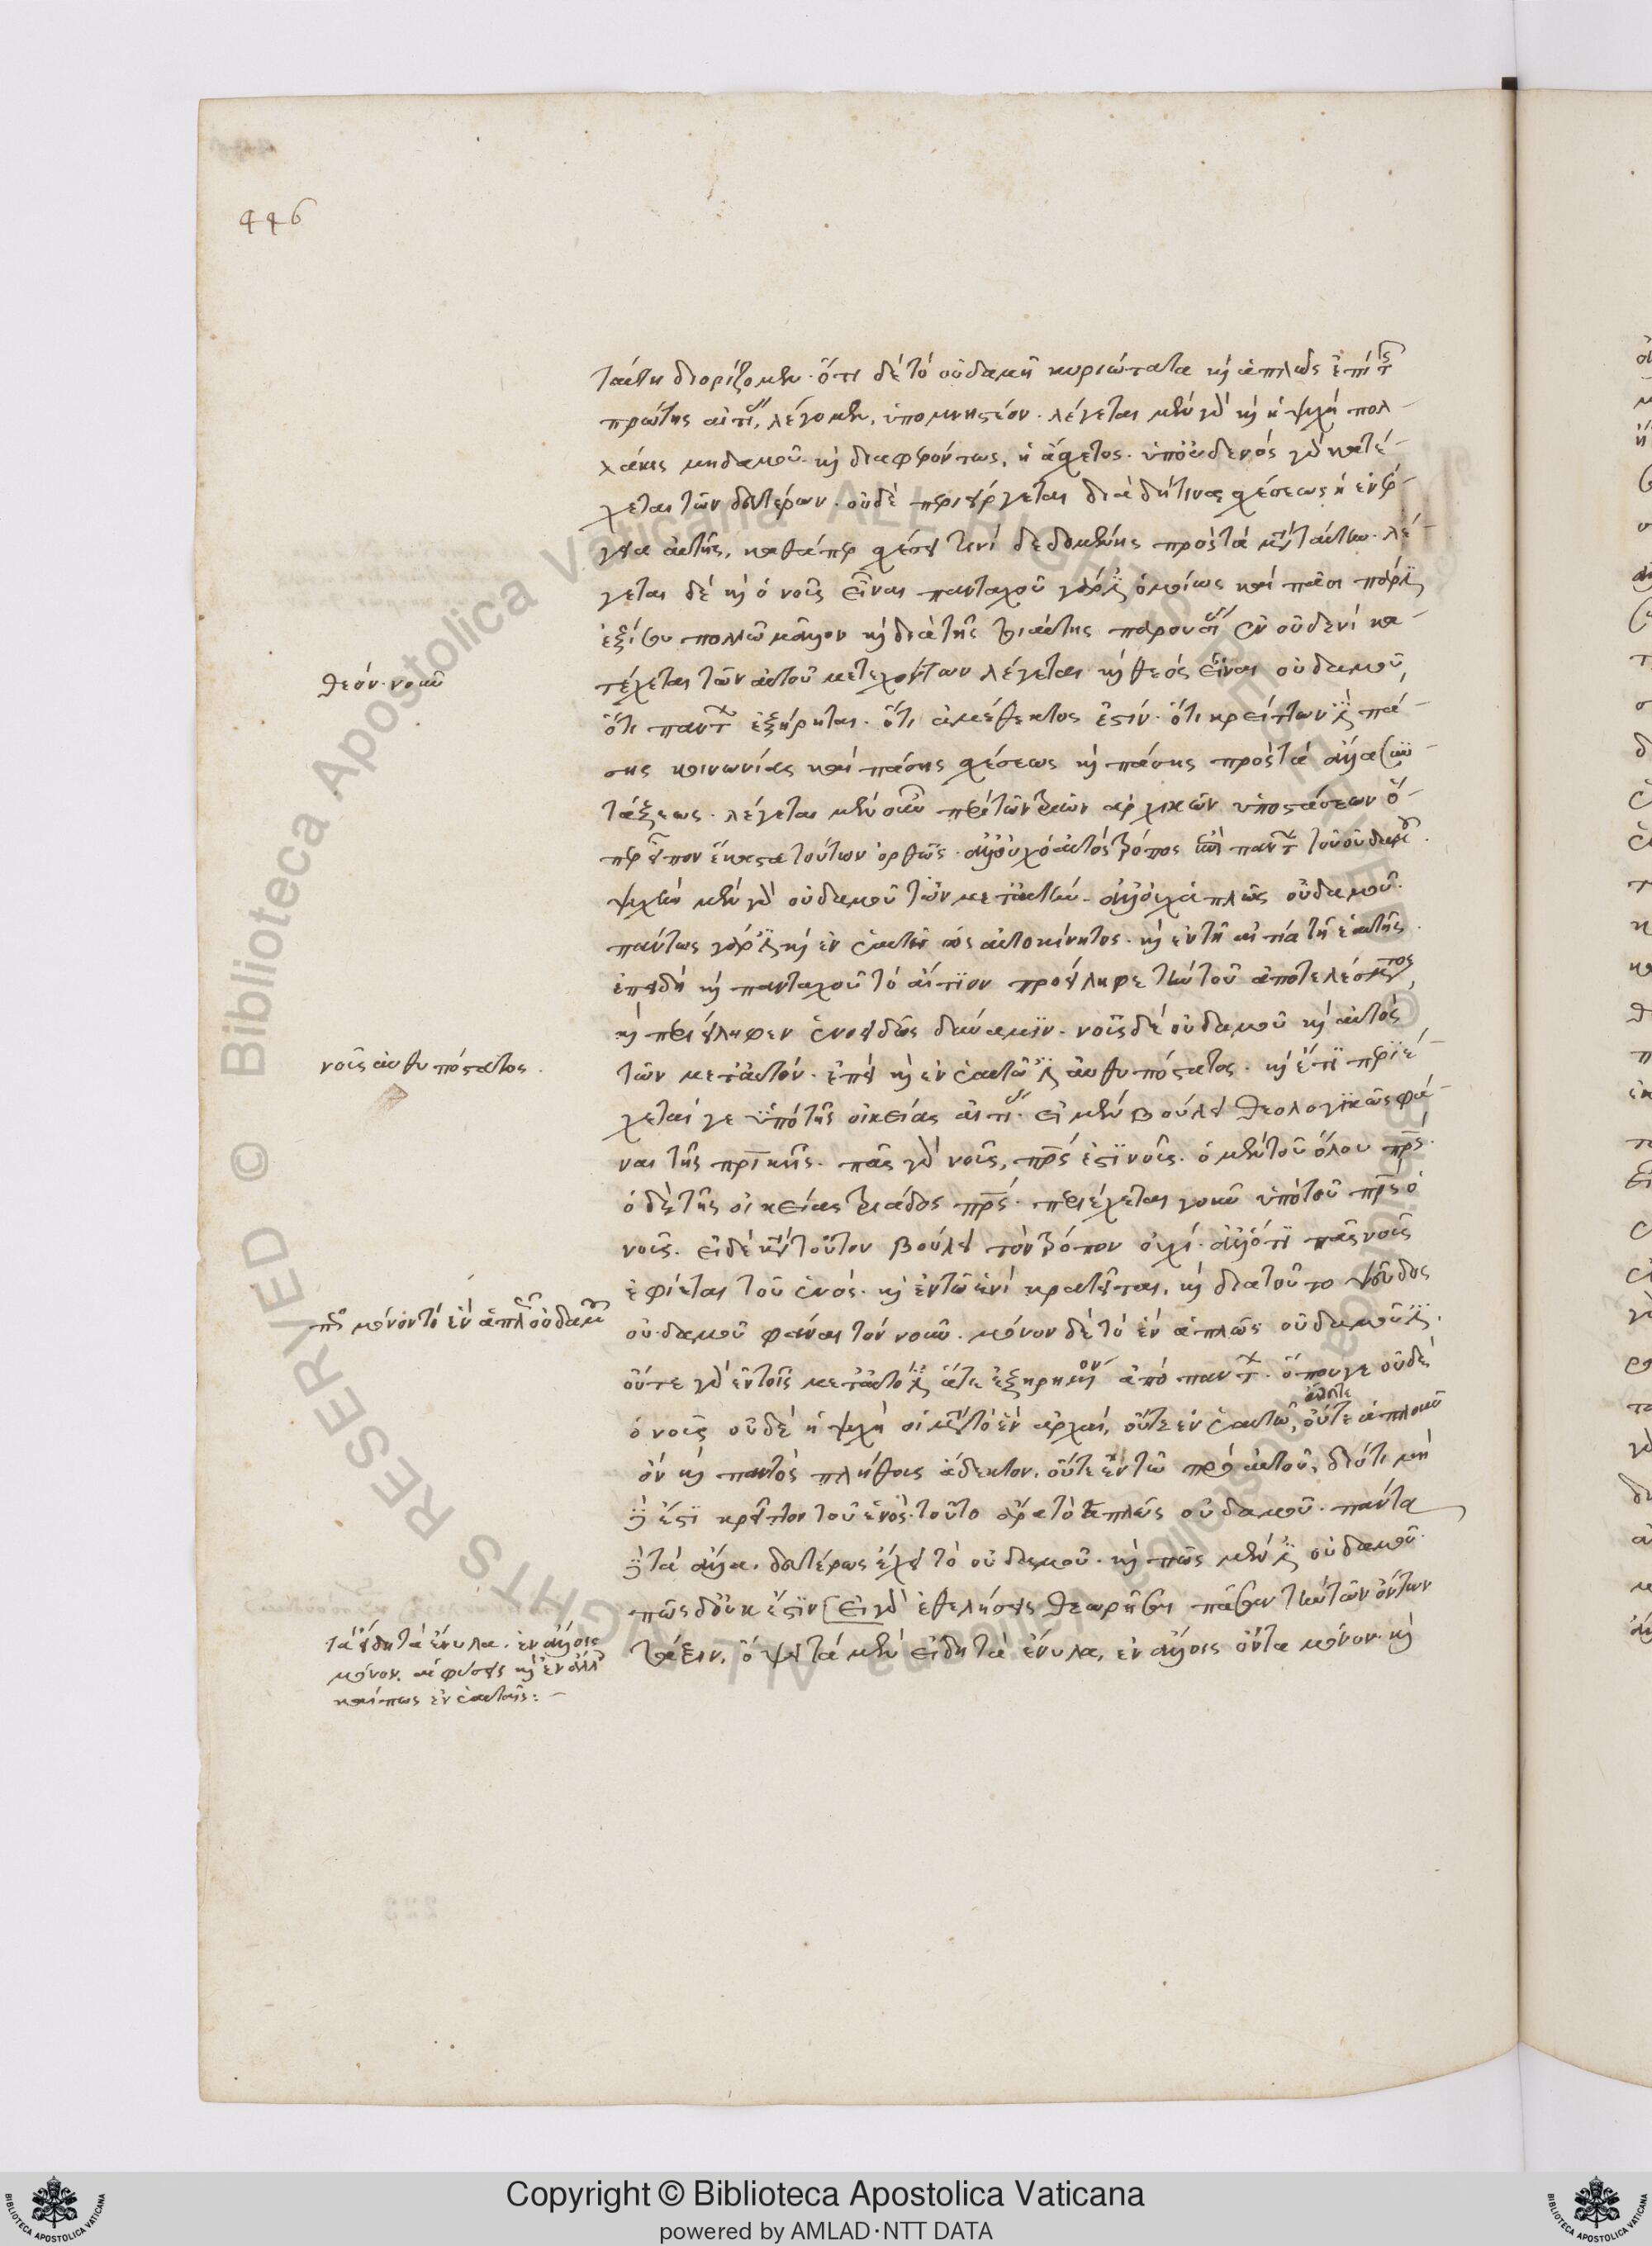 446
ταύτη διορίζομεν. ὅτι δὲ τὸ οὐδαμῆ κυριώτατα καὶ ἁπλῶς ἐπὶ τῆς
πρώτης αἰτίας λέγομεν, ὑπομνηστέον. λέγεται μὲν γὰρ καὶ ἡ ψυχὴ πολ-
λάκις μηδαμοῦ. καὶ διαφερόντως, ἡ ἄσχετος. ὑπ' οὐδενὸς γὰρ κατέ-
χεται τῶν δευτέρων. οὐδὲ περιείργεται διὰ δή τινος σχέσεως ἡ ἐνέρ-
γεια αὐτῆς, καθάπερ σχέσει τινὶ δεδεμένης πρὸς τὰ μετ' αὐτήν. λέ-
γεται δὲ καὶ ὁ νοῦς εἶναι πανταχοῦ γάρ ἐστιν ὁμοίως καὶ πᾶσι πάρεστιν
ἐξίσου πολλῷ μᾶλλον καὶ διὰ τῆς τοιαύτης παρουσίας ἐν οὐδενὶ κα-
τέχεται τῶν αὐτοῦ μετεχόντων λέγεται καὶ θεὸς εἶναι οὐδαμοῦ,
ὅτι πάντων ἐξῄρηται. ὅτι ἀμέθεκτος ἐστίν. ὅτι κρείττων ἐστὶ πά-
σης κοινωνίας καὶ πάσης σχέσεως καὶ πάσης πρὸς τὰ ἄλλα συν-
τάξεως. λέγεται μὲν οὖν περὶ τῶν τριῶν ἀρχικῶν ὑποστάσεων ὅ-
περ εἶπον ἕκαστα τούτων ὀρθῶς. ἀλλ' οὐχ ὁ αὐτὸς τρόπος ἐπὶ πάντων τοῦ οὐδαμοῦ.
ψυχὴ μὲν γὰρ οὐδαμοῦ τῶν μετ' αὐτήν. ἀλλ' οὐχ ἁπλῶς οὐδαμοῦ.
πάντως γάρ ἐστι καὶ ἐν ἑαυτῇ ὡς αὐτοκίνητος. καὶ ἐν τῇ αἰτίᾳ τῇ ἑαυτῆς.
ἐπειδὴ καὶ πανταχοῦ τὸ αἴτιον προείληφε τὴν τοῦ ἀποτελέσματος,
καὶ περιείληφεν ἑνοειδῶς δύναμιν. νοῦς δὲ οὐδαμοῦ καὶ αὐτὸς
τῶν μετ' αὐτόν. ἐπεὶ καὶ ἐν ἑαυτῷ ἐστὶν αὐθυπόστατος. καὶ ἔτι περιέ-
χεταί γε ὑπὸ τῆς οἰκείας αἰτίας. εἰ μὲν βούλει θεολογικῶς φά-
ναι τῆς πατρικῆς. πᾶς γὰρ νοῦς, πατρός ἐστι νοῦς. ὁ μὲν τοῦ ὅλου πατρός.
ὁ δὲ τῆς οἰκείας τριάδος πατρός. περιέχεται γοῦν ὑπὸ τοῦ πατρὸς ὁ
νοῦς. εἰ δὲ κατὰ τοῦτον βούλει τὸν τρόπον οὐχί. ἀλλ' ὅτι πᾶς νοῦς
ἐφίεται τοῦ ἑνός. καὶ ἐν τῷ ἑνὶ κρατεῖται, καὶ διὰ τοῦτο ψεῦδος
οὐδαμοῦ φάναι τὸν νοῦν. μόνον δὲ τὸ ἓν ἁπλῶς οὐδαμοῦ ἐστίν.
οὔτε γὰρ ἐν τοῖς μετ' αὐτό ἐστιν ἅτε ἐξῃρημένον ἀπὸ πάντων. ὅπου γε οὐδὲ
ὁ νοῦς οὐδὲ ἡ ψυχὴ αἱ μετὰ τὸ ἓν ἀρχαί, οὔτε ἐν ἑαυτῷ, ἅτε ἁπλοῦν
ὂν καὶ παντὸς πλήθους ἄδεκτον, οὔτε ἐν τῷ πρὸ αὐτοῦ, διότι μὴ
δέ ἐστι κρεῖττον τοῦ ἑνὸς. τοῦτο ἄρα τὸ ἁπλῶς οὐδαμοῦ. πάντα
δὲ τὰ ἄλλα. δευτέρως ἔχει τὸ οὐδαμοῦ. καὶ πῶς μέν ἐστιν οὐδαμοῦ.
πῶς δ' οὐκ ἔστιν. εἰ γὰρ ἐθελήσεις θεωρῆσαι πᾶσαν τὴν τῶν ὄντων
τάξιν, ὄψει τὰ μὲν εἴδη τὰ ἔνυλα, ἐν ἄλλοις ὄντα μόνον. καὶ
θεόν. νοῦν
νοῦς αὐθυπόστατος.
πῶς μόνον τὸ ἓν ἁπλῶς οὐδαμοῦ
τὰ εἴδη τὰ ἔνυλα. ἐν ἄλλοις
μόνον. αἱ φύσεις καὶ ἐν ἄλλοις
καί πως ἐν ἑαυταῖς: –
Copyright © Biblioteca Apostolica Vaticana
powered by AMLAD·NTT DATA